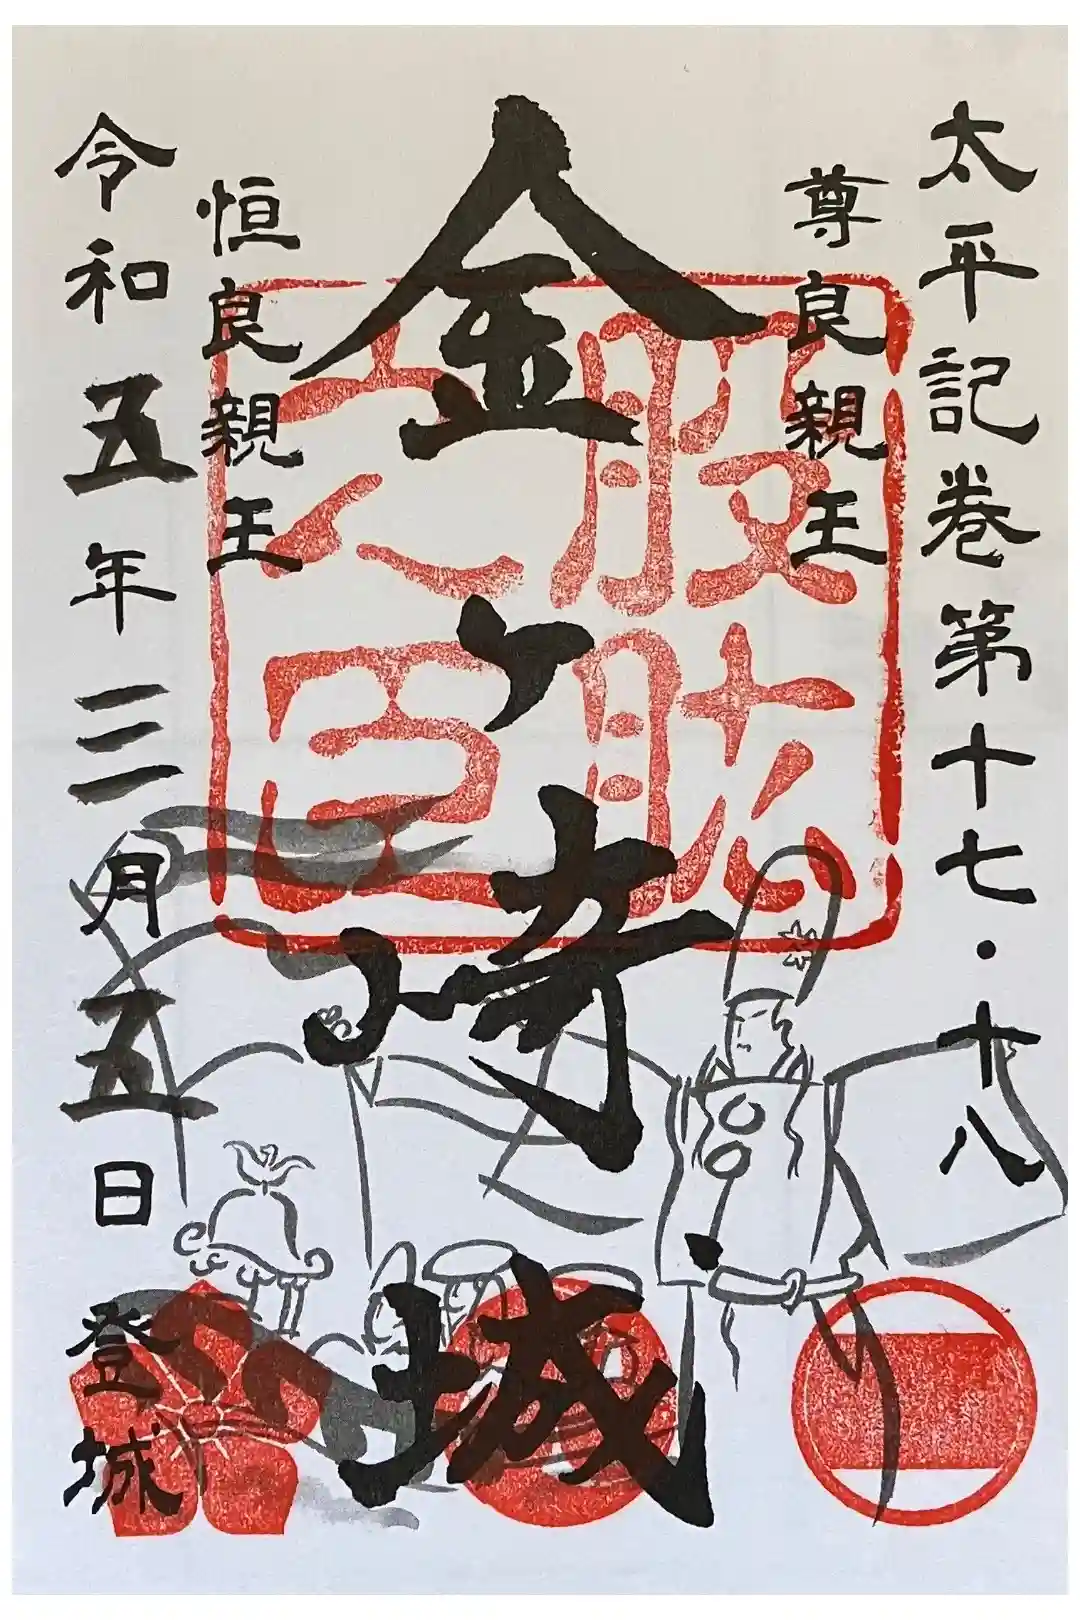 太平記巻第十七・十八
尊良親王
金ヶ崎城
股肱
之臣
恒良親王
令和五年三月五日 登城